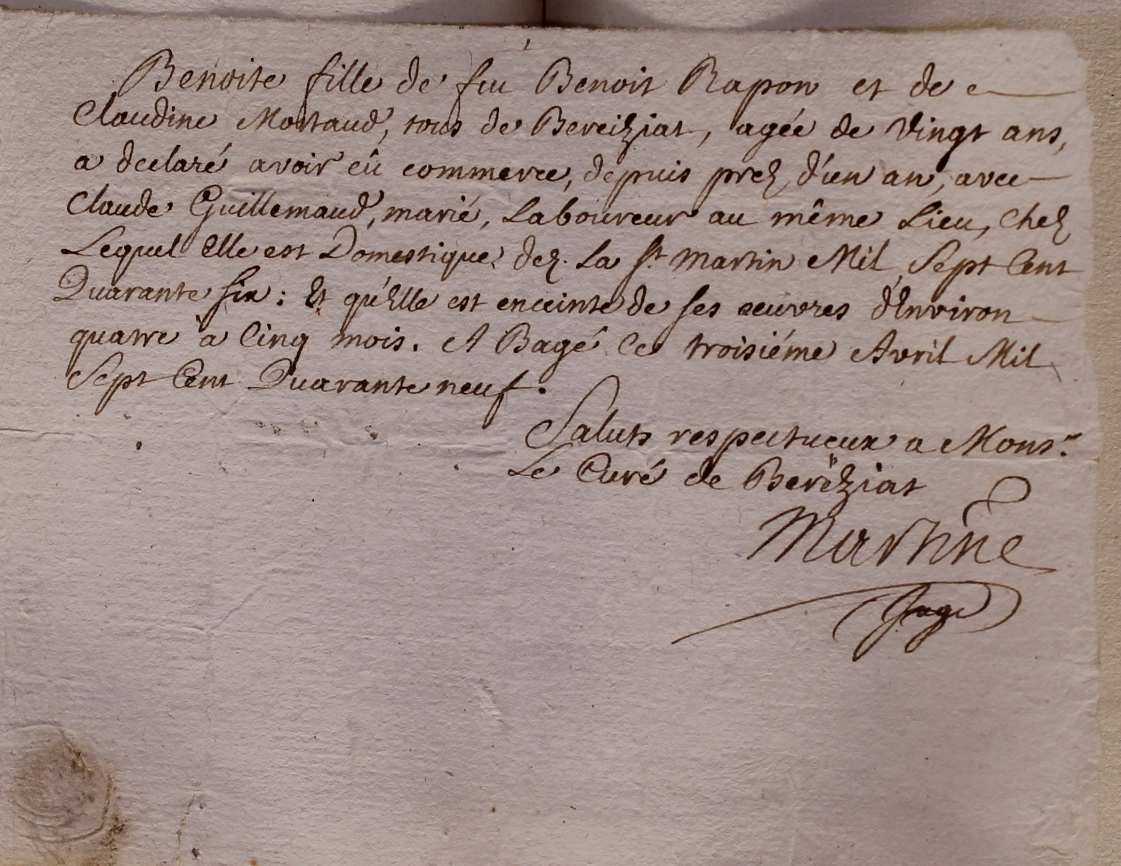 Benoite fille de feu Benoit Rapon et de
Claudine Mortaud, tous de Bereiziat, agée de Vingt ans,
a declaré avoir eû commerce, depuis prez d'un an, avec
Claude Guillemaud, marié, Laboureur au même Lieu, chez
Lequel Elle est Domestique, dez. La St. Martin Mil Sept Cent
Quarante six : Et qu'Elle est enceinte de ses œuvres d'Environ
quatre à Cinq mois. A Bagé Ce troisiéme Avril Mil
Sept Cent Quarante neuf.
Saluts respectueux a Monsr.
Le Curé de Bereïziat
Martine
Juge